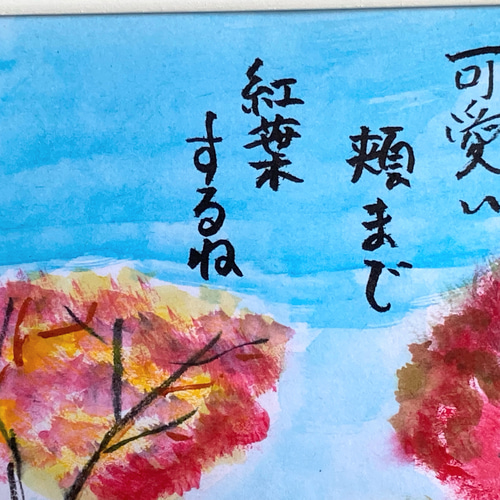 可愛い
頬まで
紅葉
するね